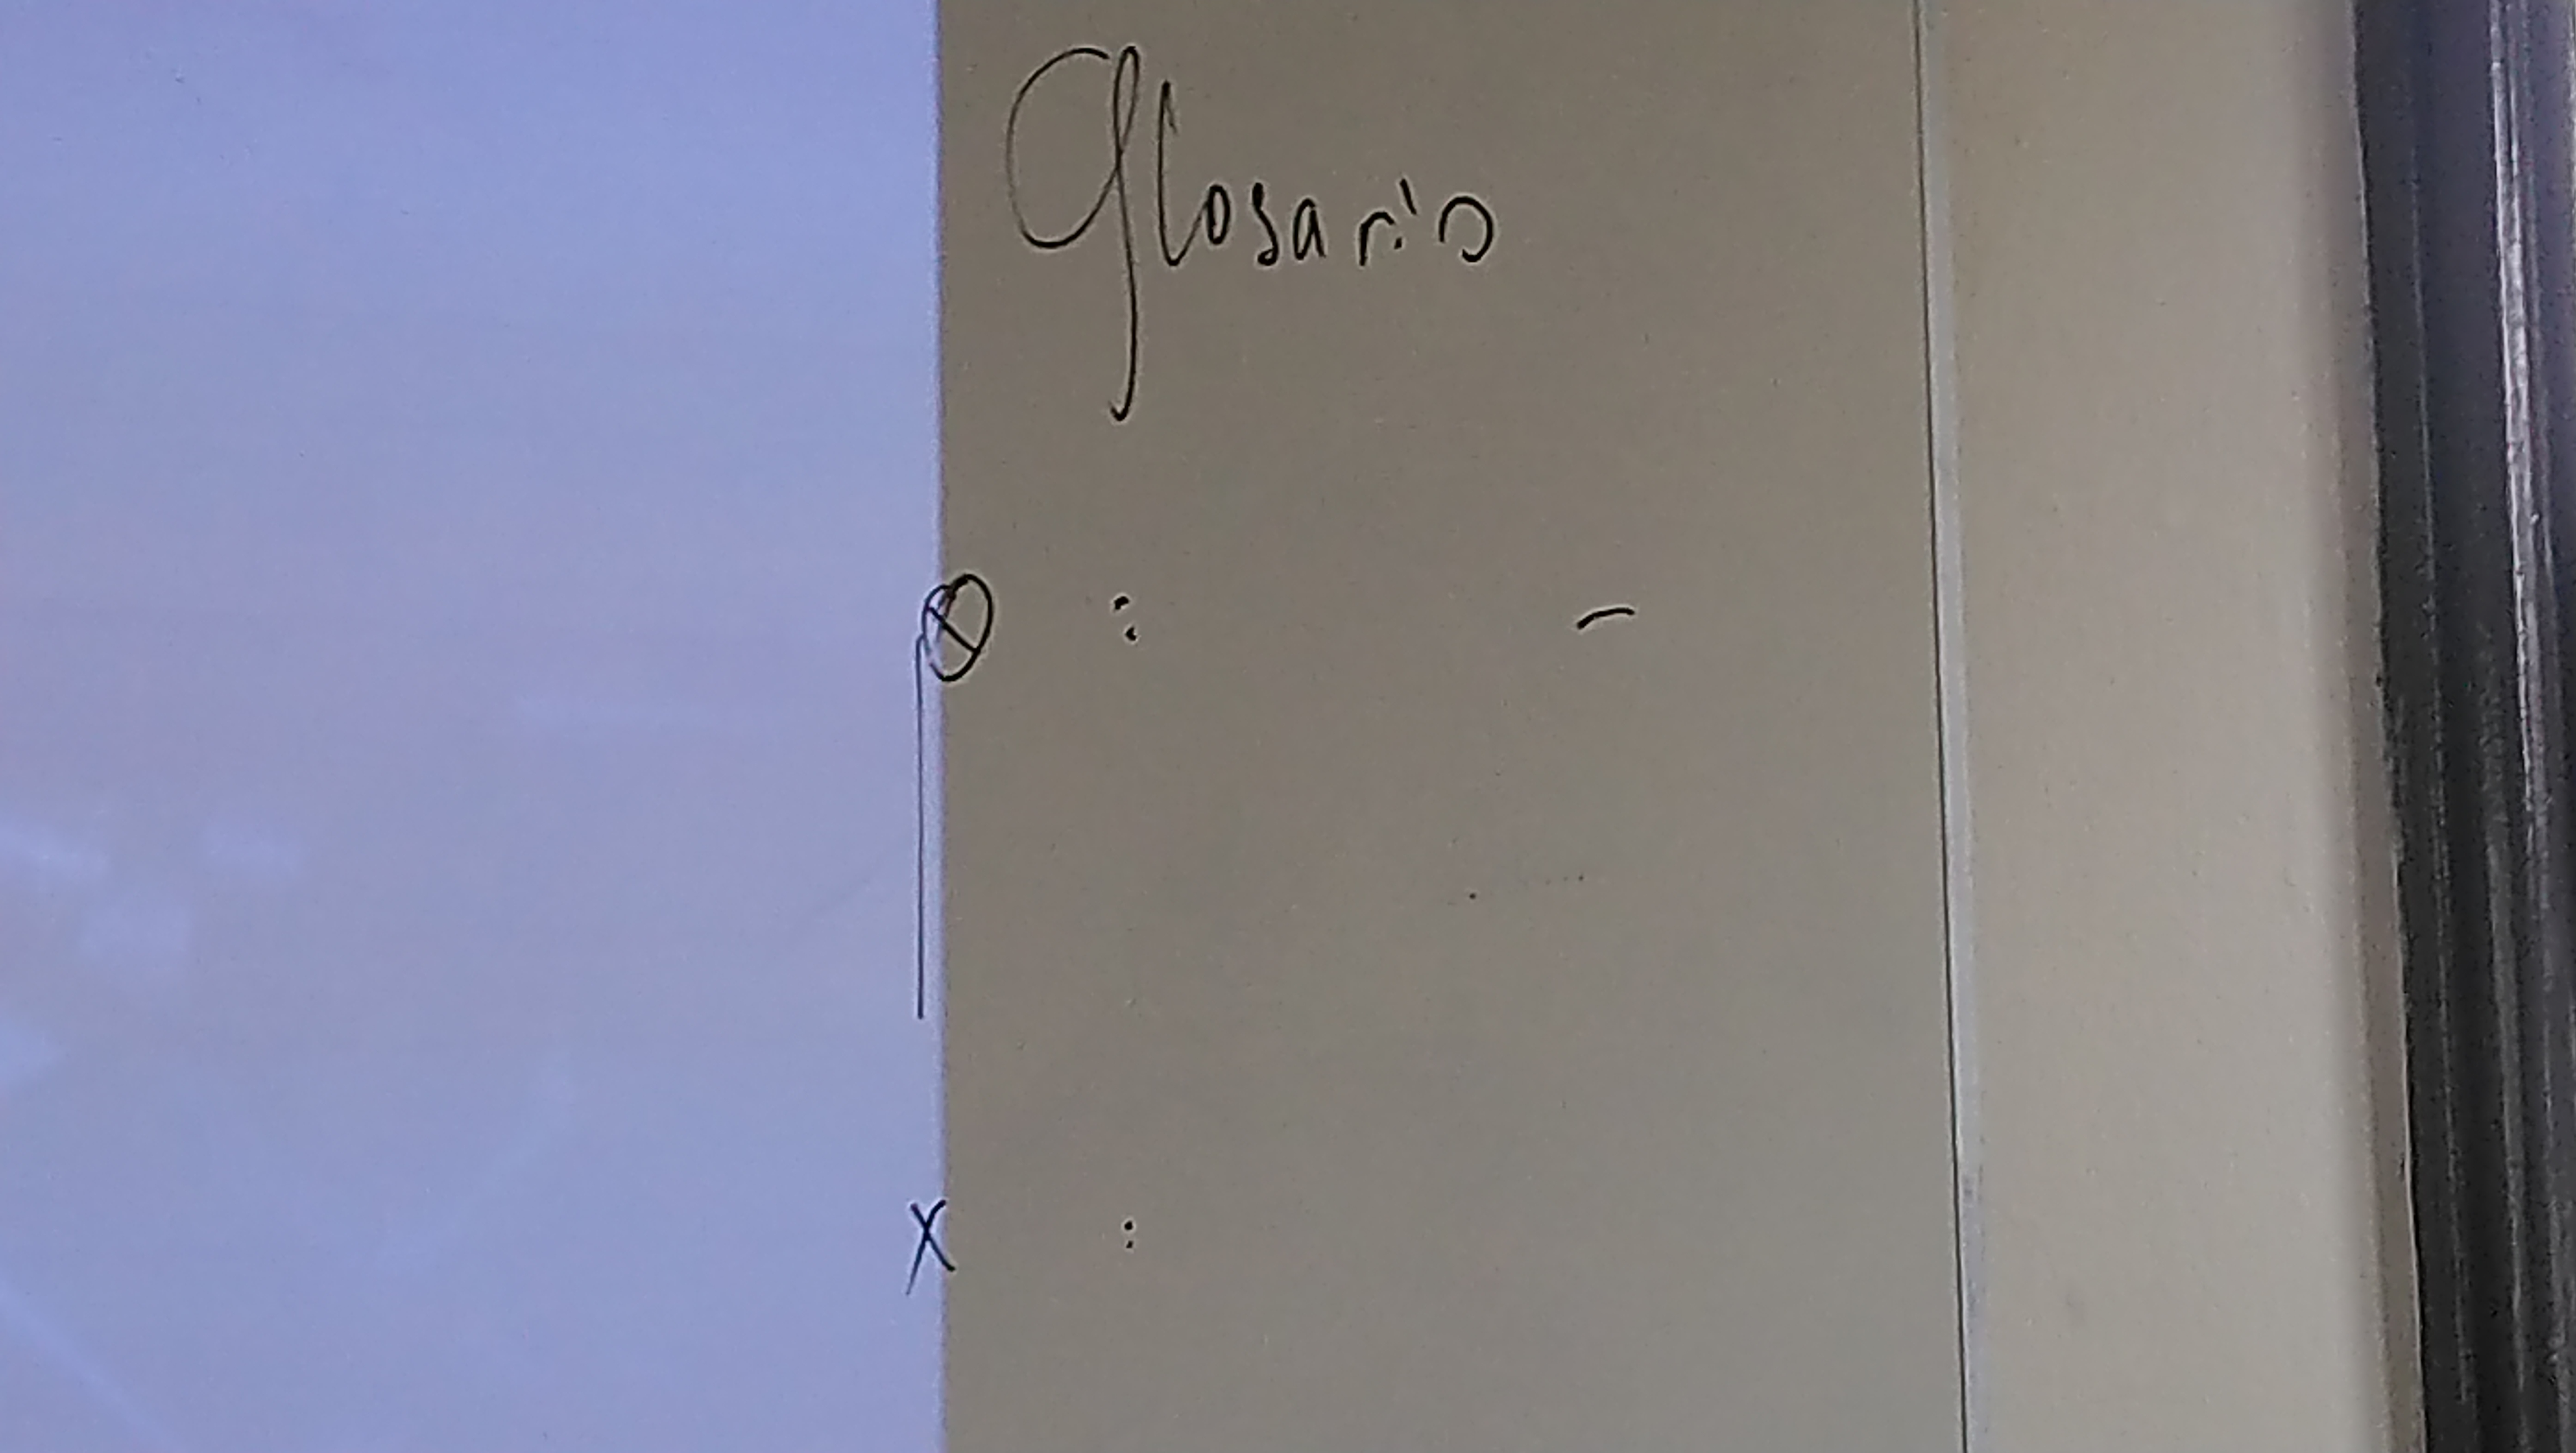 Glosario
⊗ : -
x :